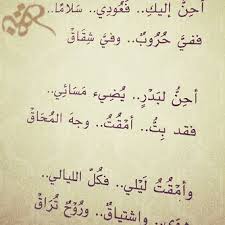 أَحِنُّ إليكِ.. فَعُودِي.. سَلَامًا..
ففيَّ حُرُوبٌ.. وفيَّ شِقَاقْ
أحِنُّ لبَدْرٍ.. يُضِيء مَسَائِي..
فقد بِتُّ.. أمْقُتُ.. وجهَ المُحَاقْ
وأمْقُتُ لَيْلي.. فكُلّ الليالي..
واشتياقٌ.. ورُوْحٌ تُرَاقْ